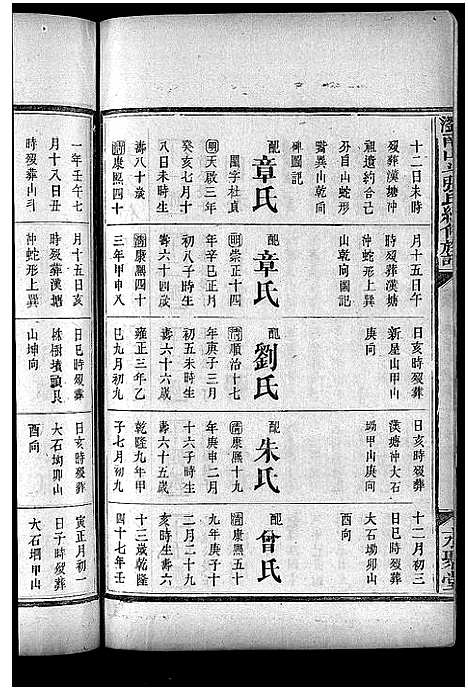 十二日未時
歿葬漢塘沖
祖遺約合己
分自山蛇形
山乾向
碑圖記
配章氏
閨字社貞
明天啟三年
癸亥七月十
八日未時生
壽八十歲
清康熙四十
一年壬午七
月十八日丑
時歿葬山斗
月十五日午
時歿葬漢塘
沖蛇形上巽
山乾向圖記
配章氏
明崇正十四
年辛巳正月
初八子時生
壽六十四歲
清康熙四十
三年甲申八
月十五日亥
時歿葬漢塘
沖蛇形上巽
日亥時歿葬
新屋山甲山
庚向
配劉氏
清順治十七
年庚子三月
初五未時生
壽六十六歲
雍正三年乙
巳九月初九
日巳時歿葬
株樹墳頭艮
山坤向
日亥時歿葬
漢塘沖大石
坳甲山庚向
配朱氏
清康熙十九
年庚申二月
十六子時生
壽六十五歲
乾隆九年甲
子七月初六
日亥時歿葬
大石坳卯山
酉向
十二月初三
日巳時歿葬
大石坳卯山
酉向
配曾氏
清康熙五十
九年庚子十
二月二十九
亥時生壽六
十三歲乾隆
四十七年壬
寅正月初一
日子時歿葬
大石堈甲山